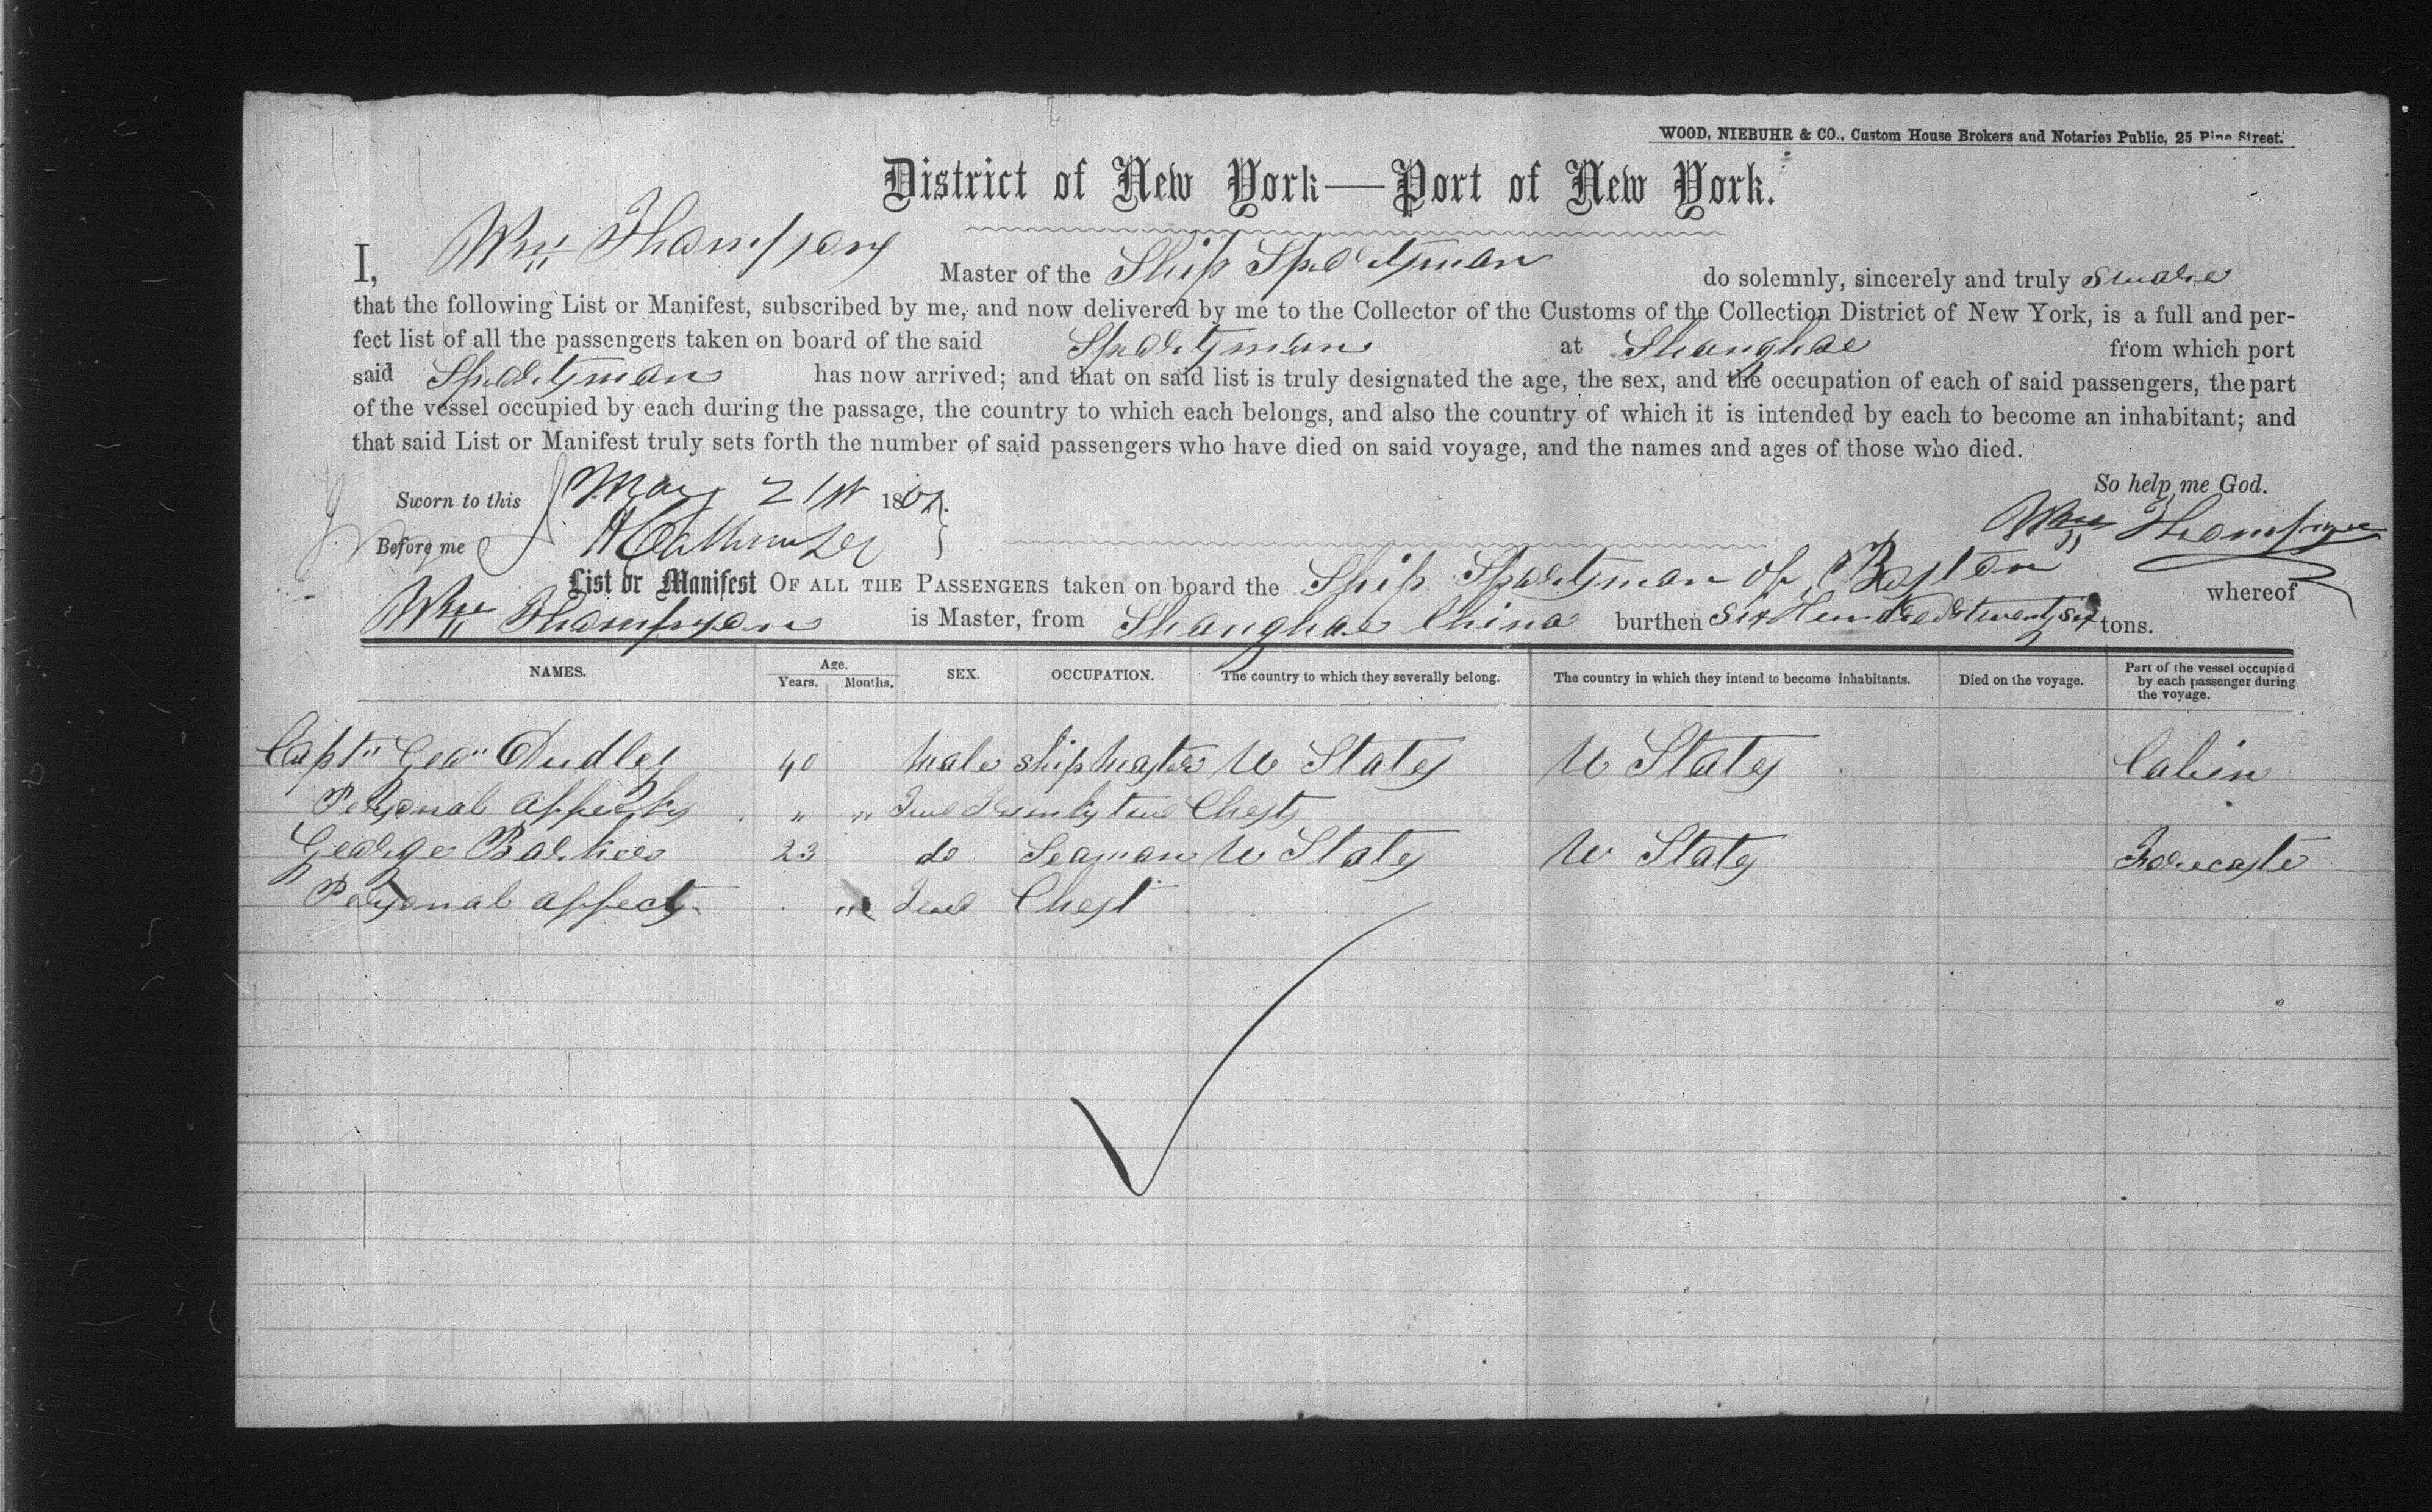 WOOD, NIEBUHR & CO., Custom House Brokers and Notaries Public, 25 Pine Street.
District of New York—Port of New York.
I, Wm Thompson Master of the Ship Spartman do solemnly, sincerely and truly swear
that the following List or Manifest, subscribed by me, and now delivered by me to the Collector of the Customs of the Collection District of New York, is a full and per-
fect list of all the passengers taken on board of the said Spartman at Shanghae from which port
said Spartman has now arrived; and that on said list is truly designated the age, the sex, and the occupation of each of said passengers, the part
of the vessel occupied by each during the passage, the country to which each belongs, and also the country of which it is intended by each to become an inhabitant; and
that said List or Manifest truly sets forth the number of said passengers who have died on said voyage, and the names and ages of those who died.
So help me God.
Sworn to this May 21st 18
Wm Thompson
Before me
List or Manifest OF ALL THE PASSENGERS taken on board the Ship Spartman of Boston whereof
Wm Thompson is Master, from Shanghae China burthen Six Hundred & twenty six tons.
NAMES. Age. Years. Months. SEX. OCCUPATION. The country to which they severally belong. The country in which they intend to become inhabitants. Died on the voyage. Part of the vessel occupied by each passenger during the voyage.
Capt" Geo" Dudley 40 Male ship Master U States U States Cabin
Personal affects " " Trunks Chests
George Barker 23 do Seaman U States U States Forecastle
Personal affects " Chest